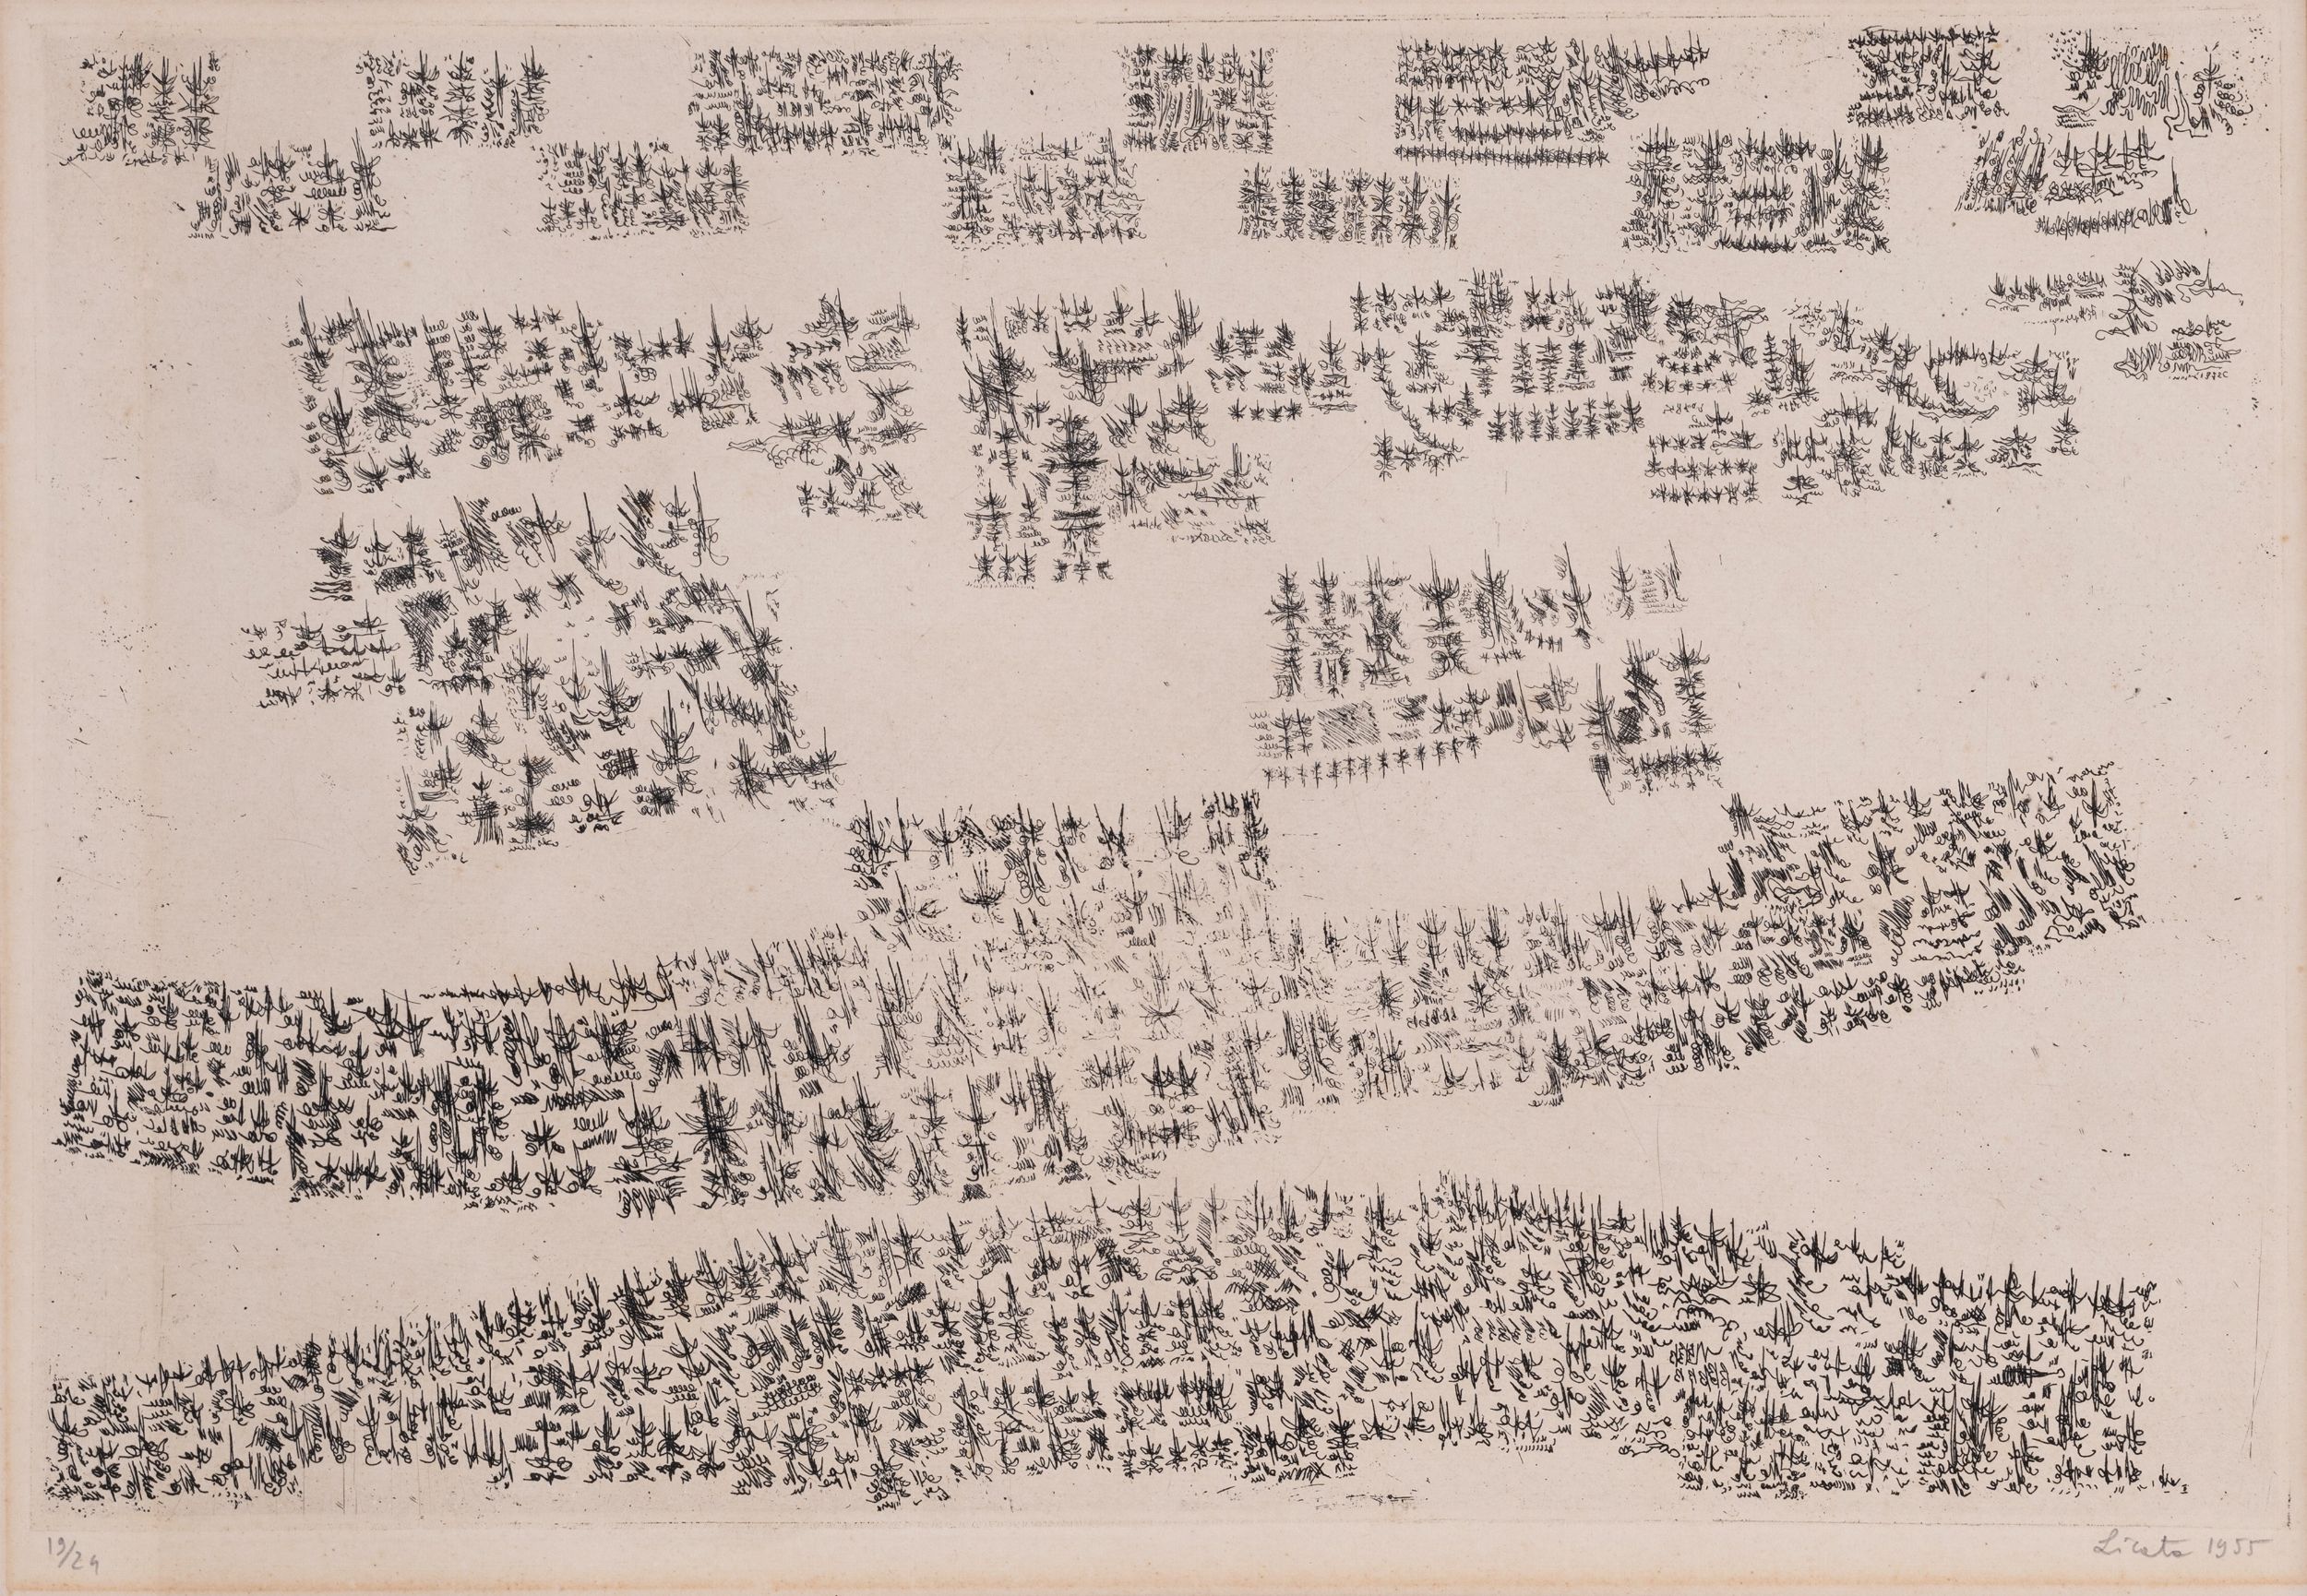 19/24
Licata 1955